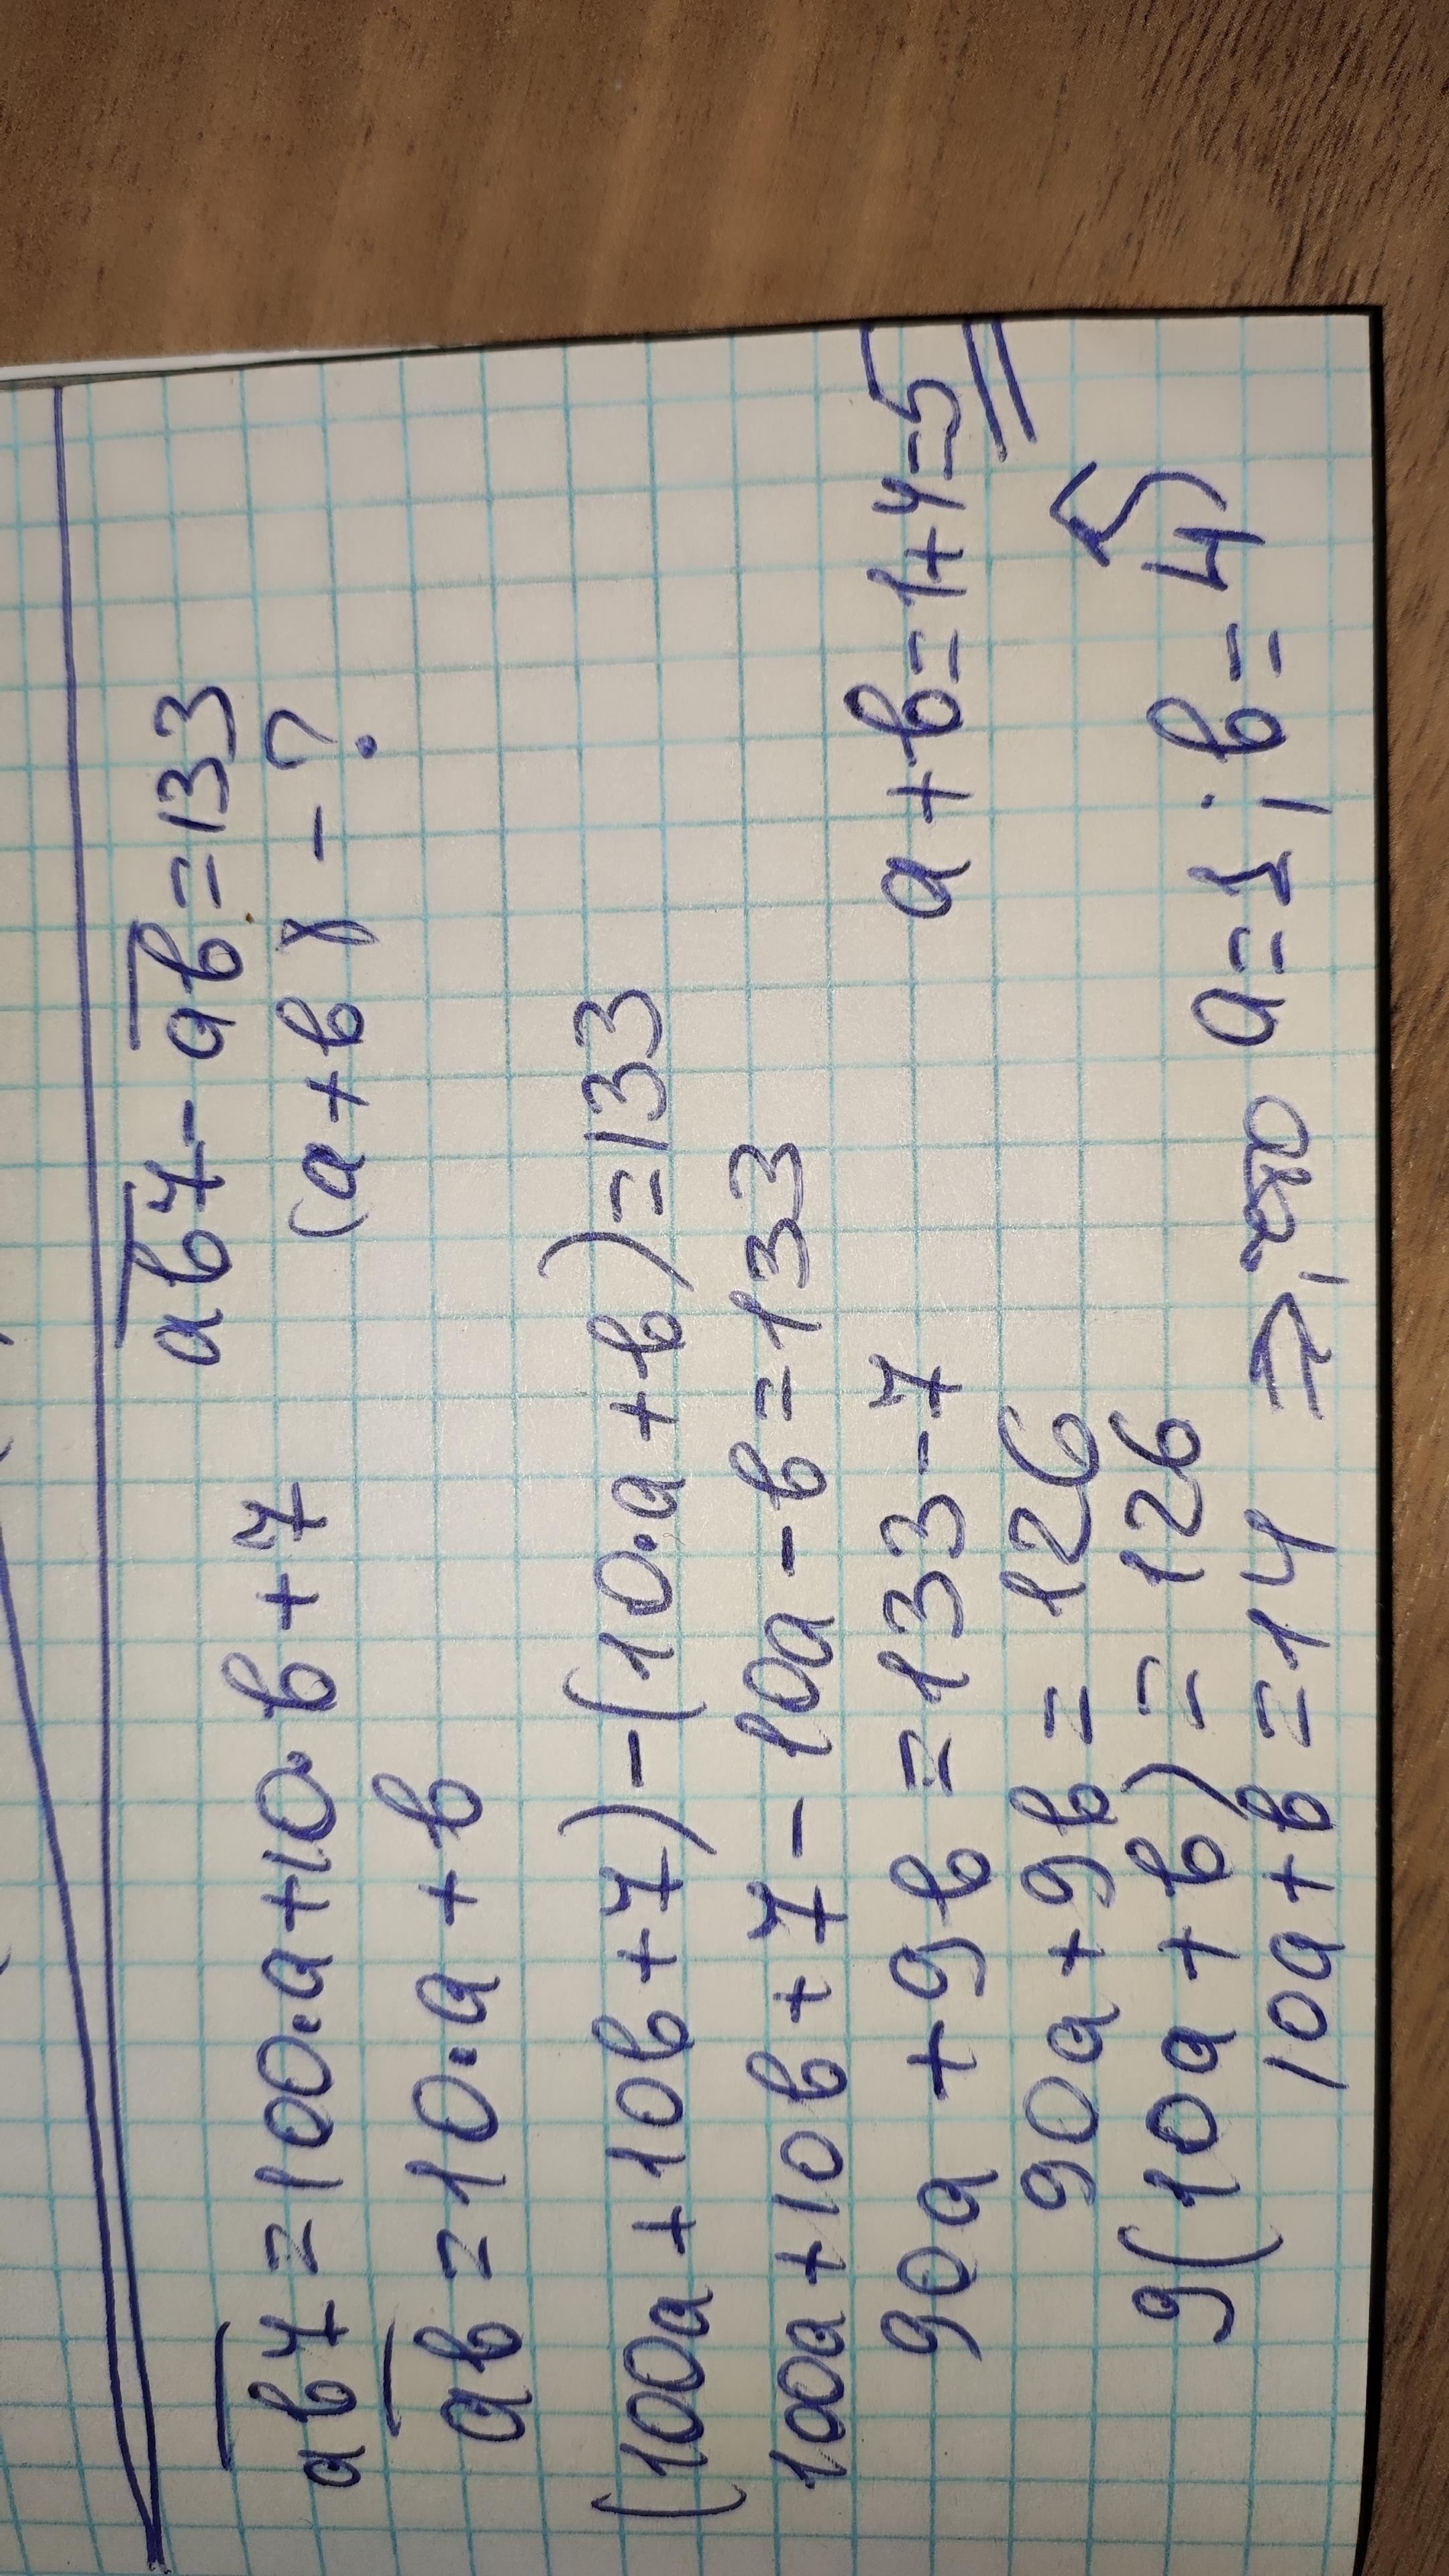 ab7 - ab = 133
(a + b) - ?
ab7 = 100·a + 10·b + 7
ab = 10·a + b
(100a + 10b + 7) - (10·a + b) = 133
100a + 10b + 7 - 10a - b = 133
90a + 9b = 133 - 7
a + b = 1 + 4 = 5
90a + 9b = 126
9(10a + b) = 126
10a + b = 14 ⇒ a = 1; b = 4